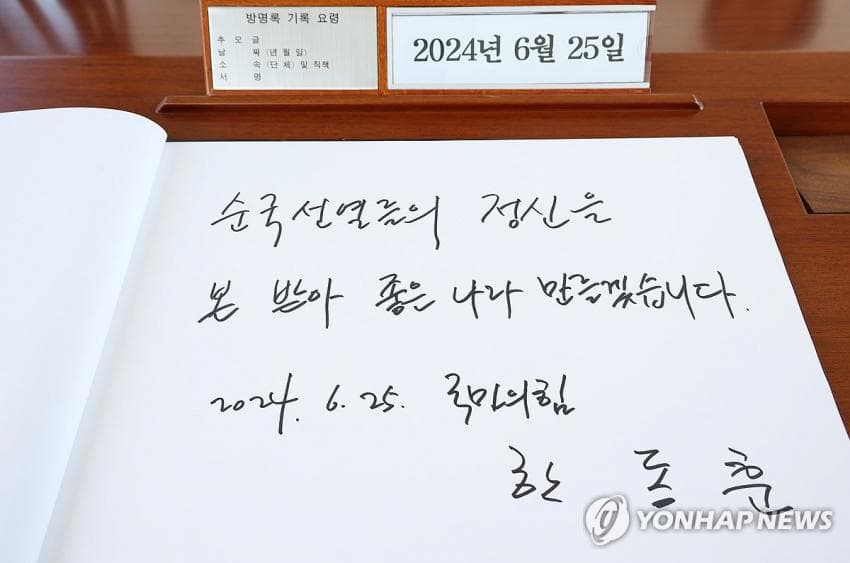 방명록 기록 요령
추 모 글
날 짜 (년 월 일)
소 속 (단 체) 및 직책
서 명
2024년 6월 25일
순국선열들의 정신을
본 받아 좋은 나라 만들겠습니다.
2024. 6. 25. 국민의힘
한 동 훈
YONHAP NEWS